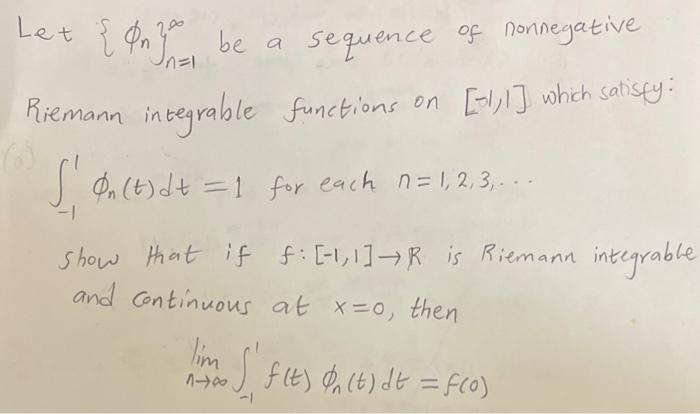 Let {ϕₙ}∞ₙ₌₁ be a sequence of nonnegative
Riemann integrable functions on [-1,1] which satisfy:
(a) ∫₋₁¹ ϕₙ(t)dt = 1 for each n=1,2,3,...
show that if f:[-1,1]→R is Riemann integrable
and continuous at x=0, then
lim n→∞ ∫₋₁¹ f(t) ϕₙ(t) dt = f(0)